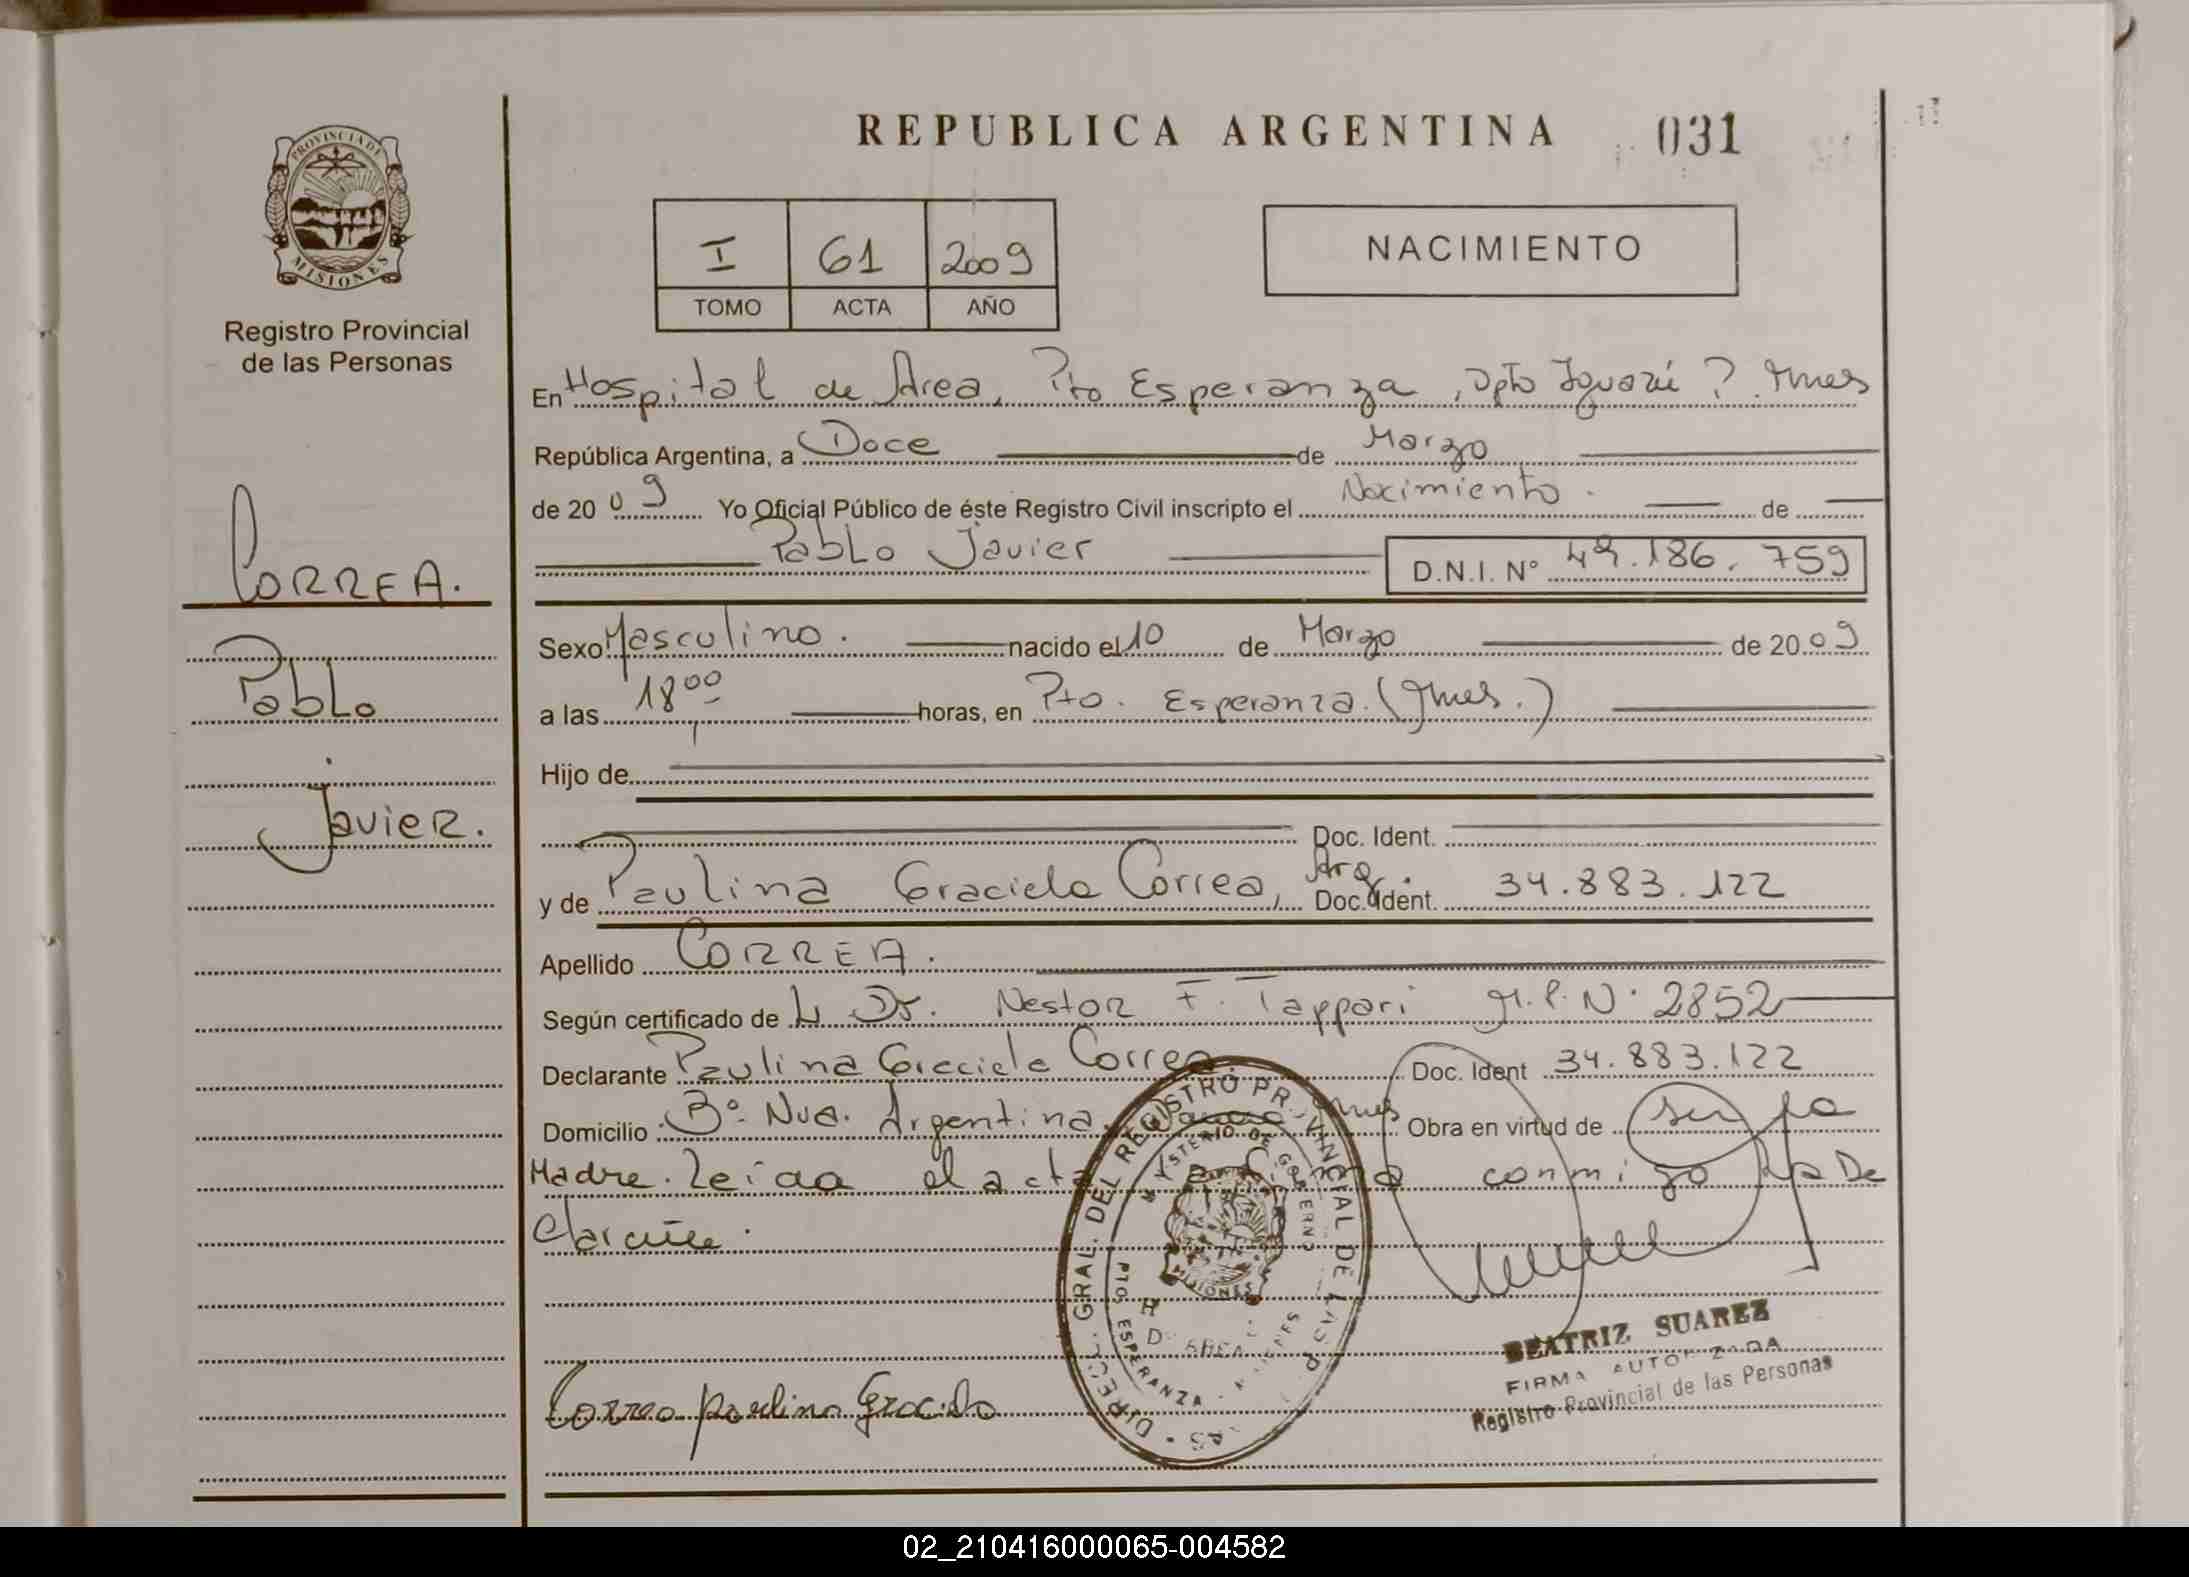 REPUBLICA ARGENTINA 031
PROVINCIA DE
MISIONES
Registro Provincial
de las Personas
I 61 2009
TOMO ACTA AÑO
NACIMIENTO
En Hospital de Area, Pto Esperanza, Dpto Iguazú
República Argentina, a Doce de Marzo
de 2009 Yo Oficial Público de éste Registro Civil inscripto el Nacimiento. de
Pablo Javier D.N.I. N° 49.186.759
CORREA.
Pablo
Javier.
Sexo Masculino. nacido el 10 de Marzo de 2009
a las 18,00 horas, en Pto. Esperanza.
Hijo de
Doc. Ident.
y de Paulina Graciela Correa, Arg. Doc. Ident. 34.883.122
Apellido CORREA.
Según certificado de L Dr. Nestor F. Tappari M.P.N° 2852
Declarante Paulina Graciela Correa Doc. Ident 34.883.122
Domicilio B° Nva. Argentina, Obra en virtud de ser la
Madre. Leida el acta conmigo la De
clarante.
DIRECC. GRAL. DEL REGISTRO PROVINCIAL DE LAS
MINISTERIO DE GOBIERNO
MISIONES
PTO. ESPERANZA
Correa paulina Graciela
BEATRIZ SUAREZ
FIRMA AUTORIZADA
Registro Provincial de las Personas
02_210416000065-004582